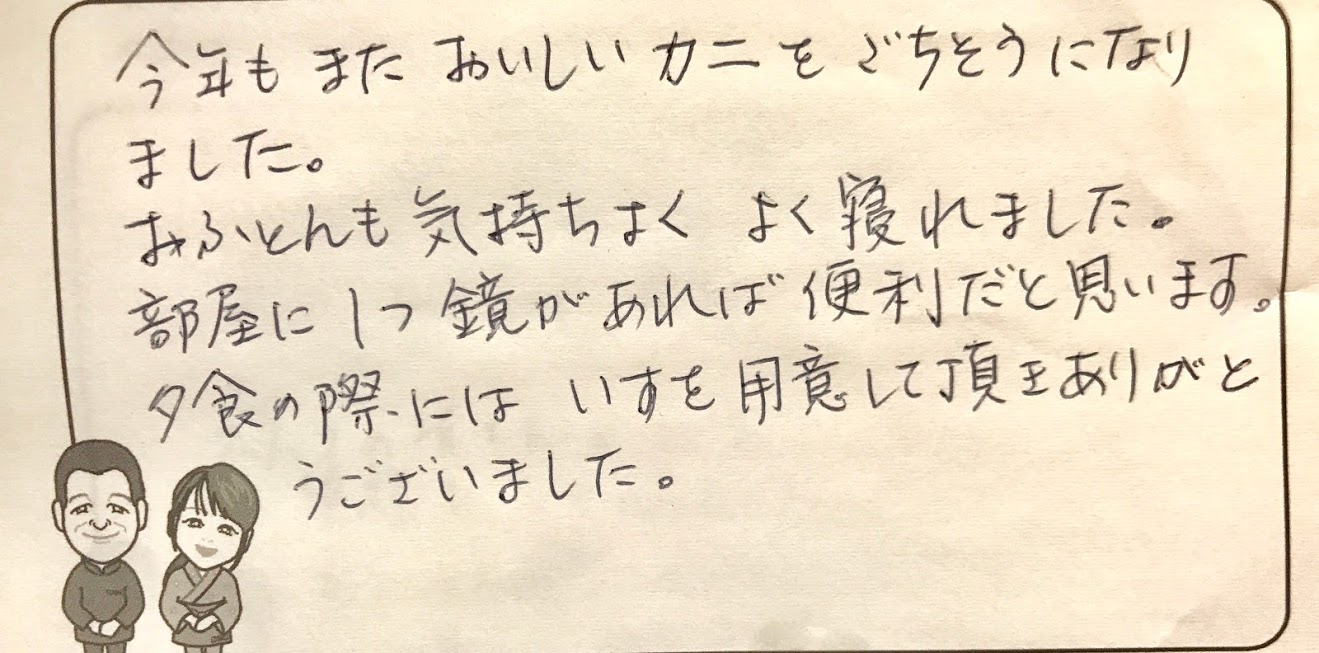 今年もまたおいしいカニをごちそうになり
ました。
おふとんも気持ちよく よく寝れました。
部屋に1つ鏡があれば便利だと思います。
夕食の際には いすを用意して頂きありがと
うございました。